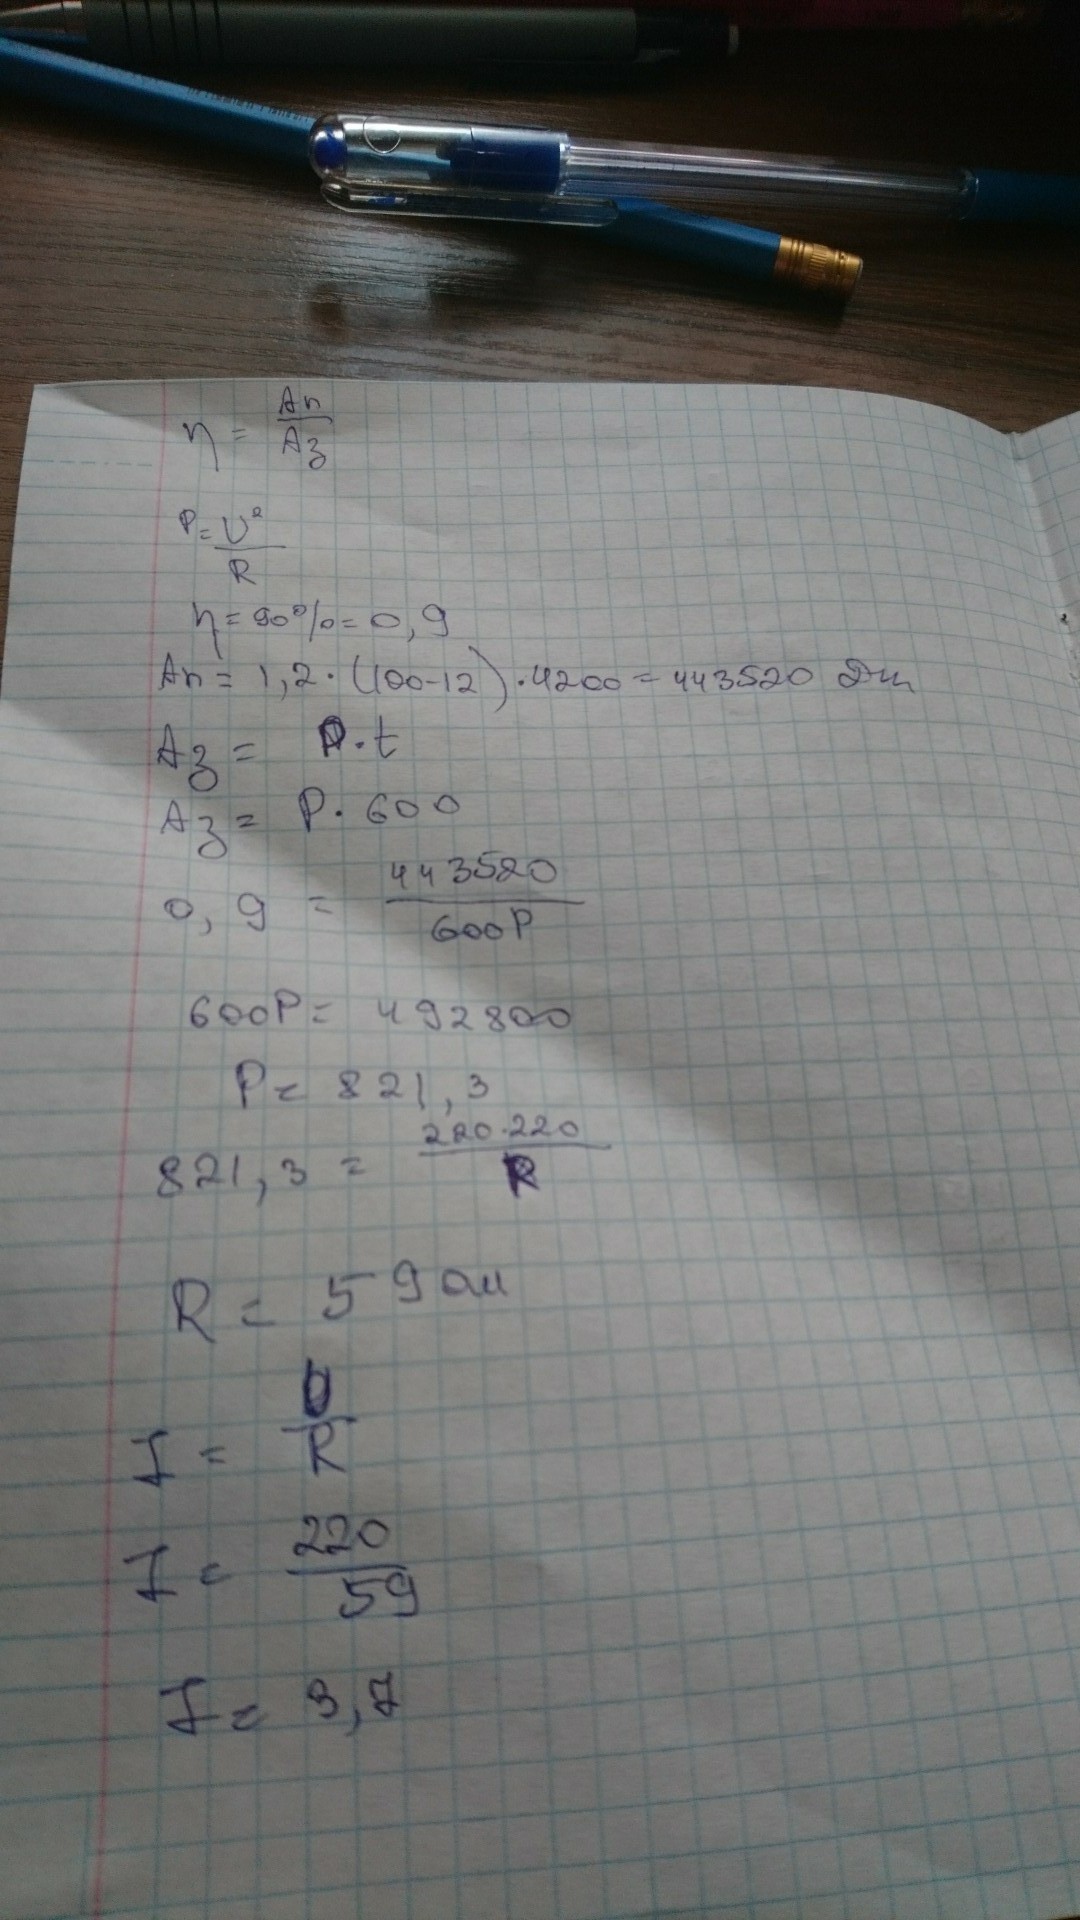 η = Aп/Aз
P = U²/R
η = 90% = 0,9
Aп = 1,2 · (100-12) · 4200 = 443520 Дж
Aз = P · t
Aз = P · 600
0,9 = 443520/600P
600P = 492800
P = 821,3
821,3 = 220·220/R
R = 59 Ом
I = U/R
I = 220/59
I = 3,7